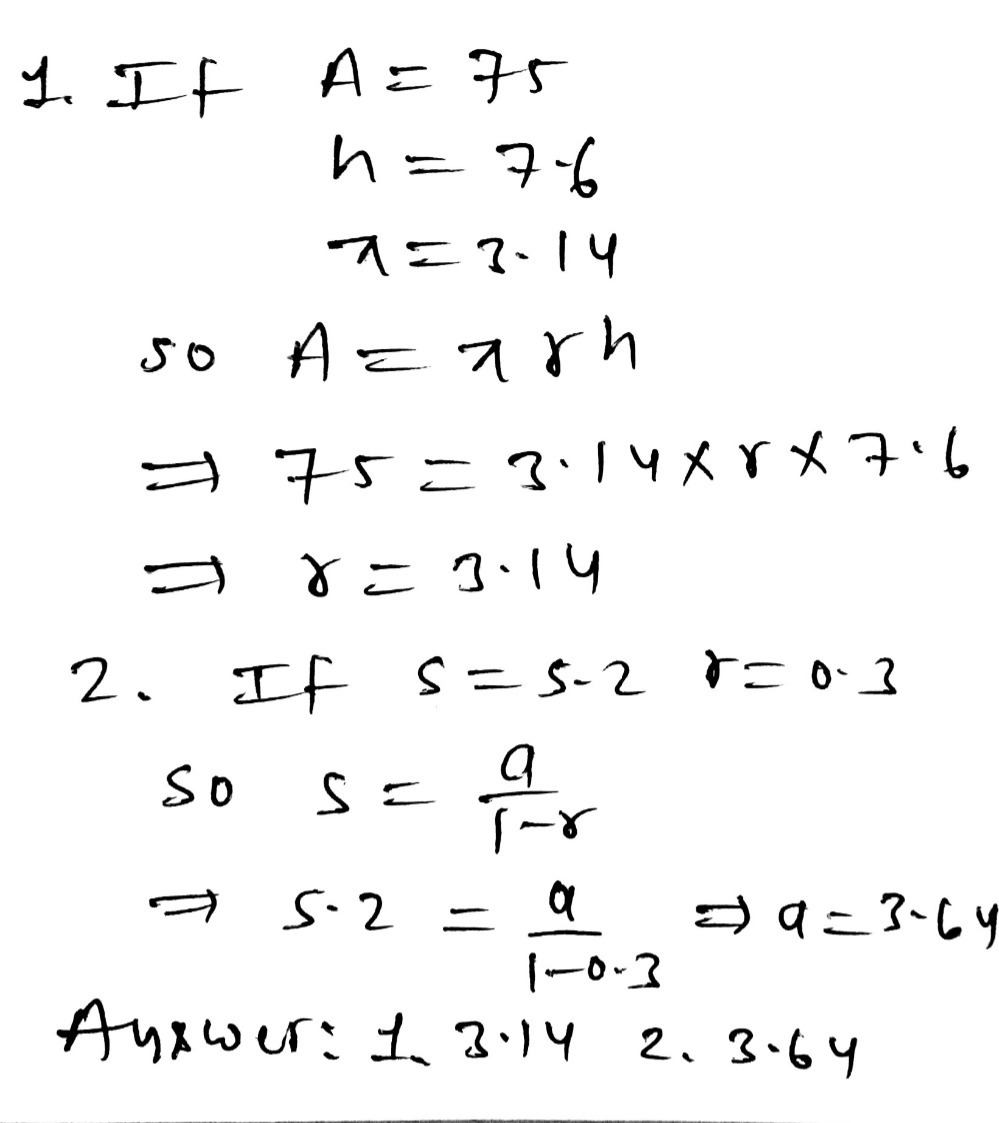 1. If A = 75
h = 7.6
π = 3.14
so A = π r h
⇒ 75 = 3.14 × r × 7.6
⇒ r = 3.14
2. If S = 5.2 r = 0.3
So S = a/1-r
⇒ 5.2 = a/1-0.3 ⇒ a = 3.64
Answer: 1. 3.14 2. 3.64